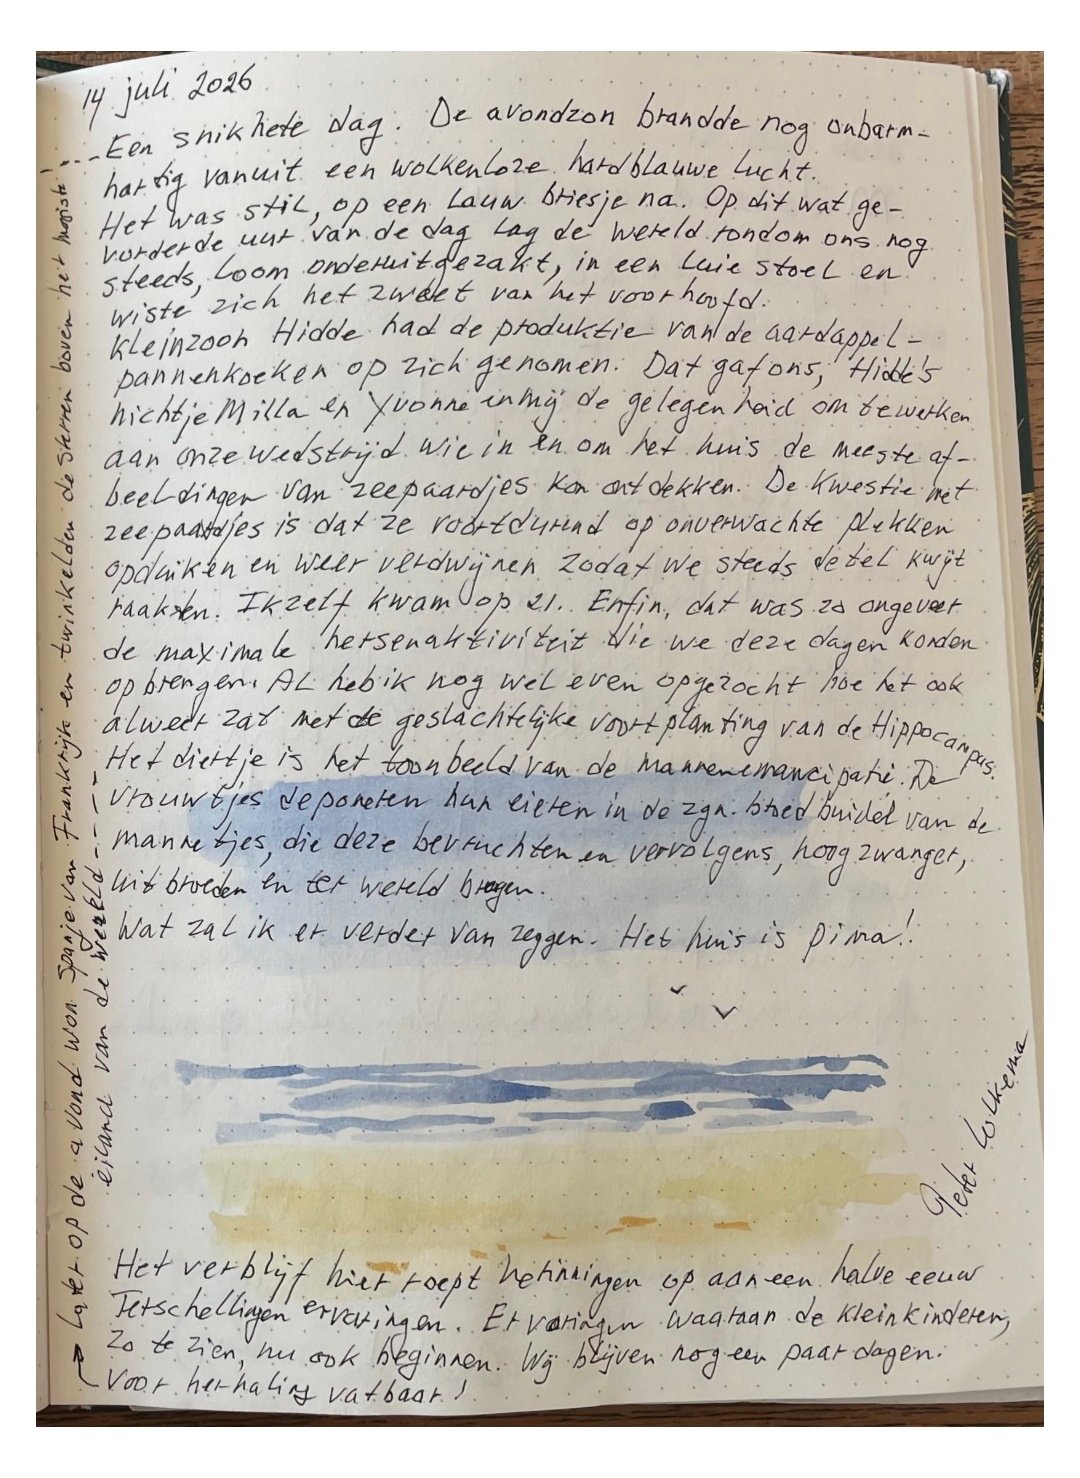 14 juli 2026
Een snikhete dag. De avondzon brandde nog onbarm-
hartig vanuit een wolkenloze hardblauwe lucht.
Het was stil, op een lauw briesje na. Op dit wat ge-
vorderde uur van de dag lag de wereld rondom ons nog
steeds, loom onderuitgezakt, in een luie stoel en
wiste zich het zweet van het voorhoofd.
Kleinzoon Hidde had de produktie van de aardappel-
pannenkoeken op zich genomen. Dat gaf ons, Hidde's
nichtje Milla en Yvonne en mij de gelegenheid om te werken
aan onze wedstrijd wie in en om het huis de meeste af-
beeldingen van zeepaardjes kon ontdekken. De kwestie met
zeepaardjes is dat ze voortdurend op onverwachte plekken
opduiken en weer verdwijnen zodat we steeds de tel kwijt
raakten. Ikzelf kwam op 21. Enfin, dat was zo ongeveer
de maximale hersenaktiviteit die we deze dagen konden
opbrengen. Al heb ik nog wel even opgezocht hoe het ook
alweer zat met de geslachtelijke voortplanting van de Hippocampus.
Het diertje is het toonbeeld van de mannenemancipatie. De
vrouwtjes deponeren hun eieren in de zgn. broedbuidel van de
mannetjes, die deze bevruchten en vervolgens, hoogzwanger,
uitbroeden en ter wereld brengen.
Wat zal ik er verder van zeggen. Het huis is pima!
Peter Wolkema
Het verblijf hier roept herinneringen op aan een halve eeuw
Terschellingen ervaringen. Ervaringen waaraan de kleinkinderen,
zo te zien, nu ook beginnen. Wij blijven nog een paar dagen.
Voor herhaling vatbaar!
Later op de avond won Spanje van Frankrijk en twinkelden de sterren boven het mooiste
eiland van de wereld